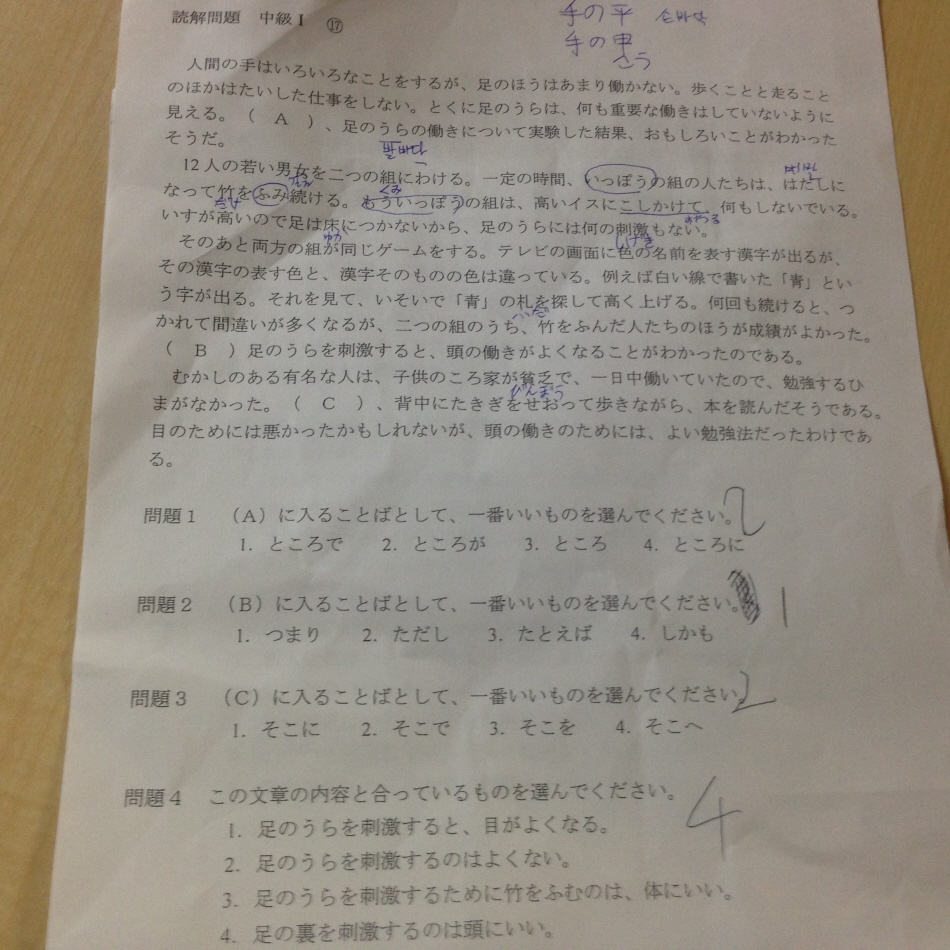 読解問題 中級Ⅰ ⑰
手の平 손바닥
手の甲
こう
人間の手はいろいろなことをするが、足のほうはあまり働かない。歩くことと走ること
のほかはたいした仕事をしない。とくに足のうらは、何も重要な働きはしていないように
見える。（ A ）、足のうらの働きについて実験した結果、おもしろいことがわかった
そうだ。
발바닥
12人の若い男女を二つの組にわける。一定の時間、いっぽうの組の人たちは、はだしに
なって竹をふみ続ける。もういっぽうの組は、高いイスにこしかけて、何もしないでいる。
たけ
くみ
いすが高いので足は床につかないから、足のうらには何の刺激もない。
ゆか
しげき
そのあと両方の組が同じゲームをする。テレビの画面に色の名前を表す漢字が出るが、
その漢字の表す色と、漢字そのものの色は違っている。例えば白い線で書いた「青」とい
う字が出る。それを見て、いそいで「青」の札を探して高く上げる。何回も続けると、つ
かれて間違いが多くなるが、二つの組のうち、竹をふんだ人たちのほうが成績がよかった。
（ B ）足のうらを刺激すると、頭の働きがよくなることがわかったのである。
むかしのある有名な人は、子供のころ家が貧乏で、一日中働いていたので、勉強するひ
びんぼう
まがなかった。（ C ）、背中にたきぎをせおって歩きながら、本を読んだそうである。
目のためには悪かったかもしれないが、頭の働きのためには、よい勉強法だったわけであ
る。
問題１ （A）に入ることばとして、一番いいものを選んでください。 2
1. ところで 2. ところが 3. ところ 4. ところに
問題２ （B）に入ることばとして、一番いいものを選んでください。 1
1. つまり 2. ただし 3. たとえば 4. しかも
問題３ （C）に入ることばとして、一番いいものを選んでください。 2
1. そこに 2. そこで 3. そこを 4. そこへ
問題４ この文章の内容と合っているものを選んでください。 4
1. 足のうらを刺激すると、目がよくなる。
2. 足のうらを刺激するのはよくない。
3. 足のうらを刺激するために竹をふむのは、体にいい。
4. 足の裏を刺激するのは頭にいい。